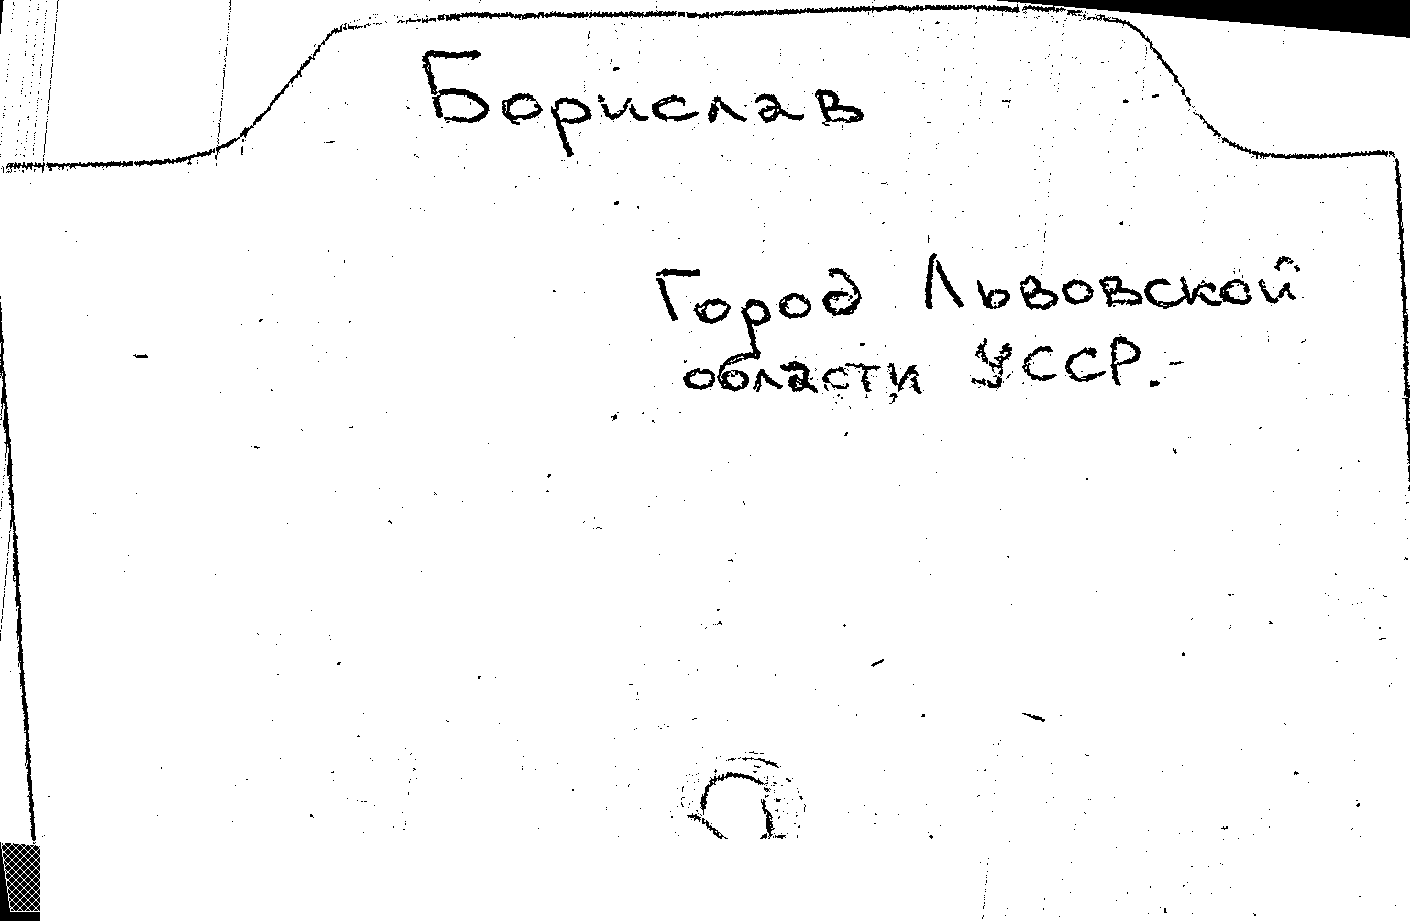 Борислав
Город Львовской
области УССР.-